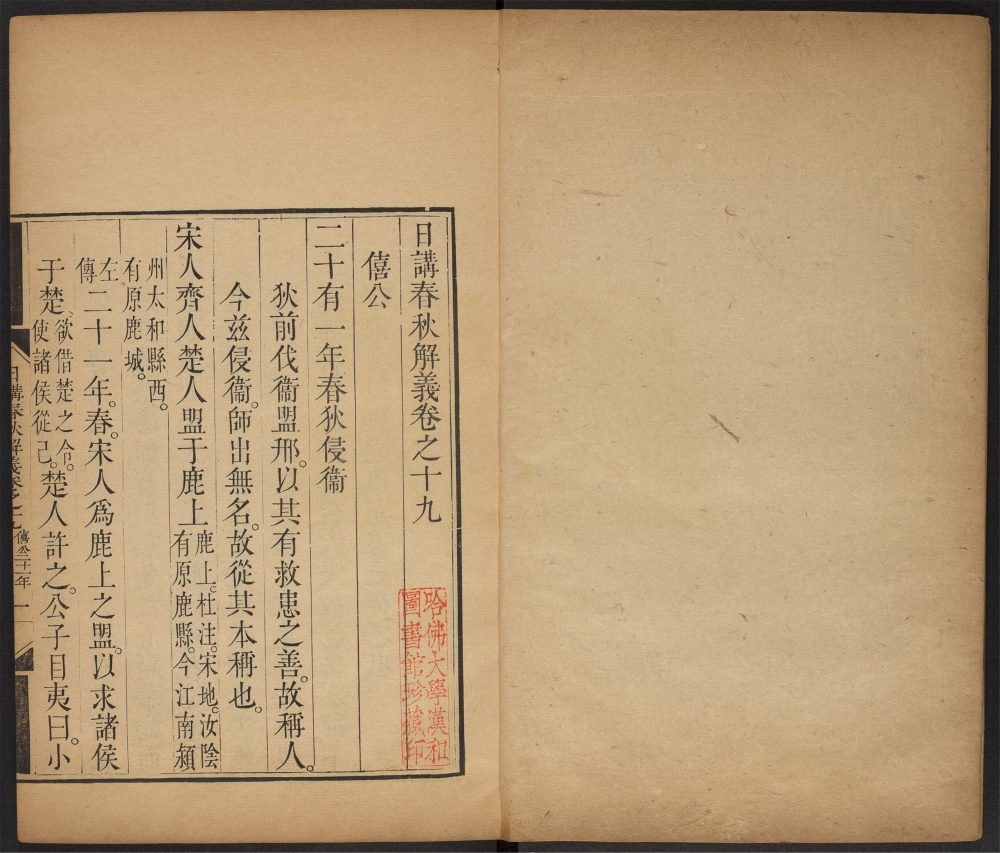 日講春秋解義卷之十九
哈佛大學漢和
圖書館珍藏印
僖公
二十有一年春狄侵衞
狄前伐衞盟邢。以其有救患之善。故稱人。
今兹侵衞。師出無名。故從其本稱也。
宋人齊人楚人盟于鹿上
鹿上。杜注。宋地。汝陰
有原鹿縣。今江南潁
州太和縣西。
有原鹿城。
左
傳
二十一年。春。宋人爲鹿上之盟。以求諸侯
于楚。
欲借楚之令。
使諸侯從己。
楚人許之。公子目夷曰。小
日講春秋解義卷之十九
僖公二十一年
一